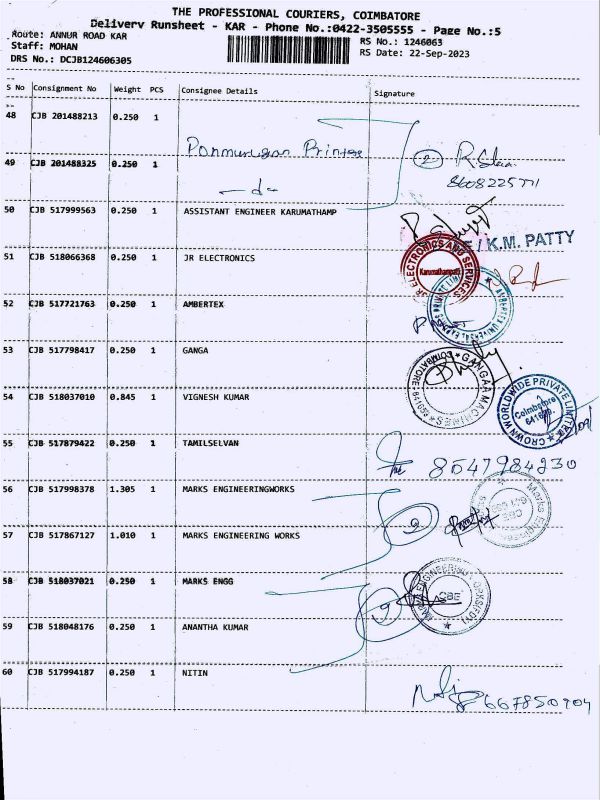 THE PROFESSIONAL COURIERS, COIMBATORE
Delivery Runsheet - KAR - Phone No.:0422-3505555 - Page No.:5
Route: ANNUR ROAD KAR
Staff: MOHAN
DRS No.: DCJB124606305
RS No.: 1246063
RS Date: 22-Sep-2023
S No Consignment No Weight PCS Consignee Details Signature
48 CJB 201488213 0.250 1
Ponmurugan Printers
49 CJB 201488325 0.250 1
-do-
2
8608225771
50 CJB 517999563 0.250 1 ASSISTANT ENGINEER KARUMATHAMP
/ K.M. PATTY
51 CJB 518066368 0.250 1 JR ELECTRONICS
JR ELECTRONICS AND SERVICES
Karumathampatti
52 CJB 517721763 0.250 1 AMBERTEX
53 CJB 517798417 0.250 1 GANGA
GANGAA MACHINES
COIMBATORE-641659
54 CJB 518037010 0.845 1 VIGNESH KUMAR
CROWN WORLDWIDE PRIVATE LIMITED
Coimbatore
55 CJB 517879422 0.250 1 TAMILSELVAN
8547984230
56 CJB 517998378 1.305 1 MARKS ENGINEERINGWORKS
57 CJB 517867127 1.010 1 MARKS ENGINEERING WORKS
2
58 CJB 518037021 0.250 1 MARKS ENGG
CBE
59 CJB 518048176 0.250 1 ANANTHA KUMAR
60 CJB 517994187 0.250 1 NITIN